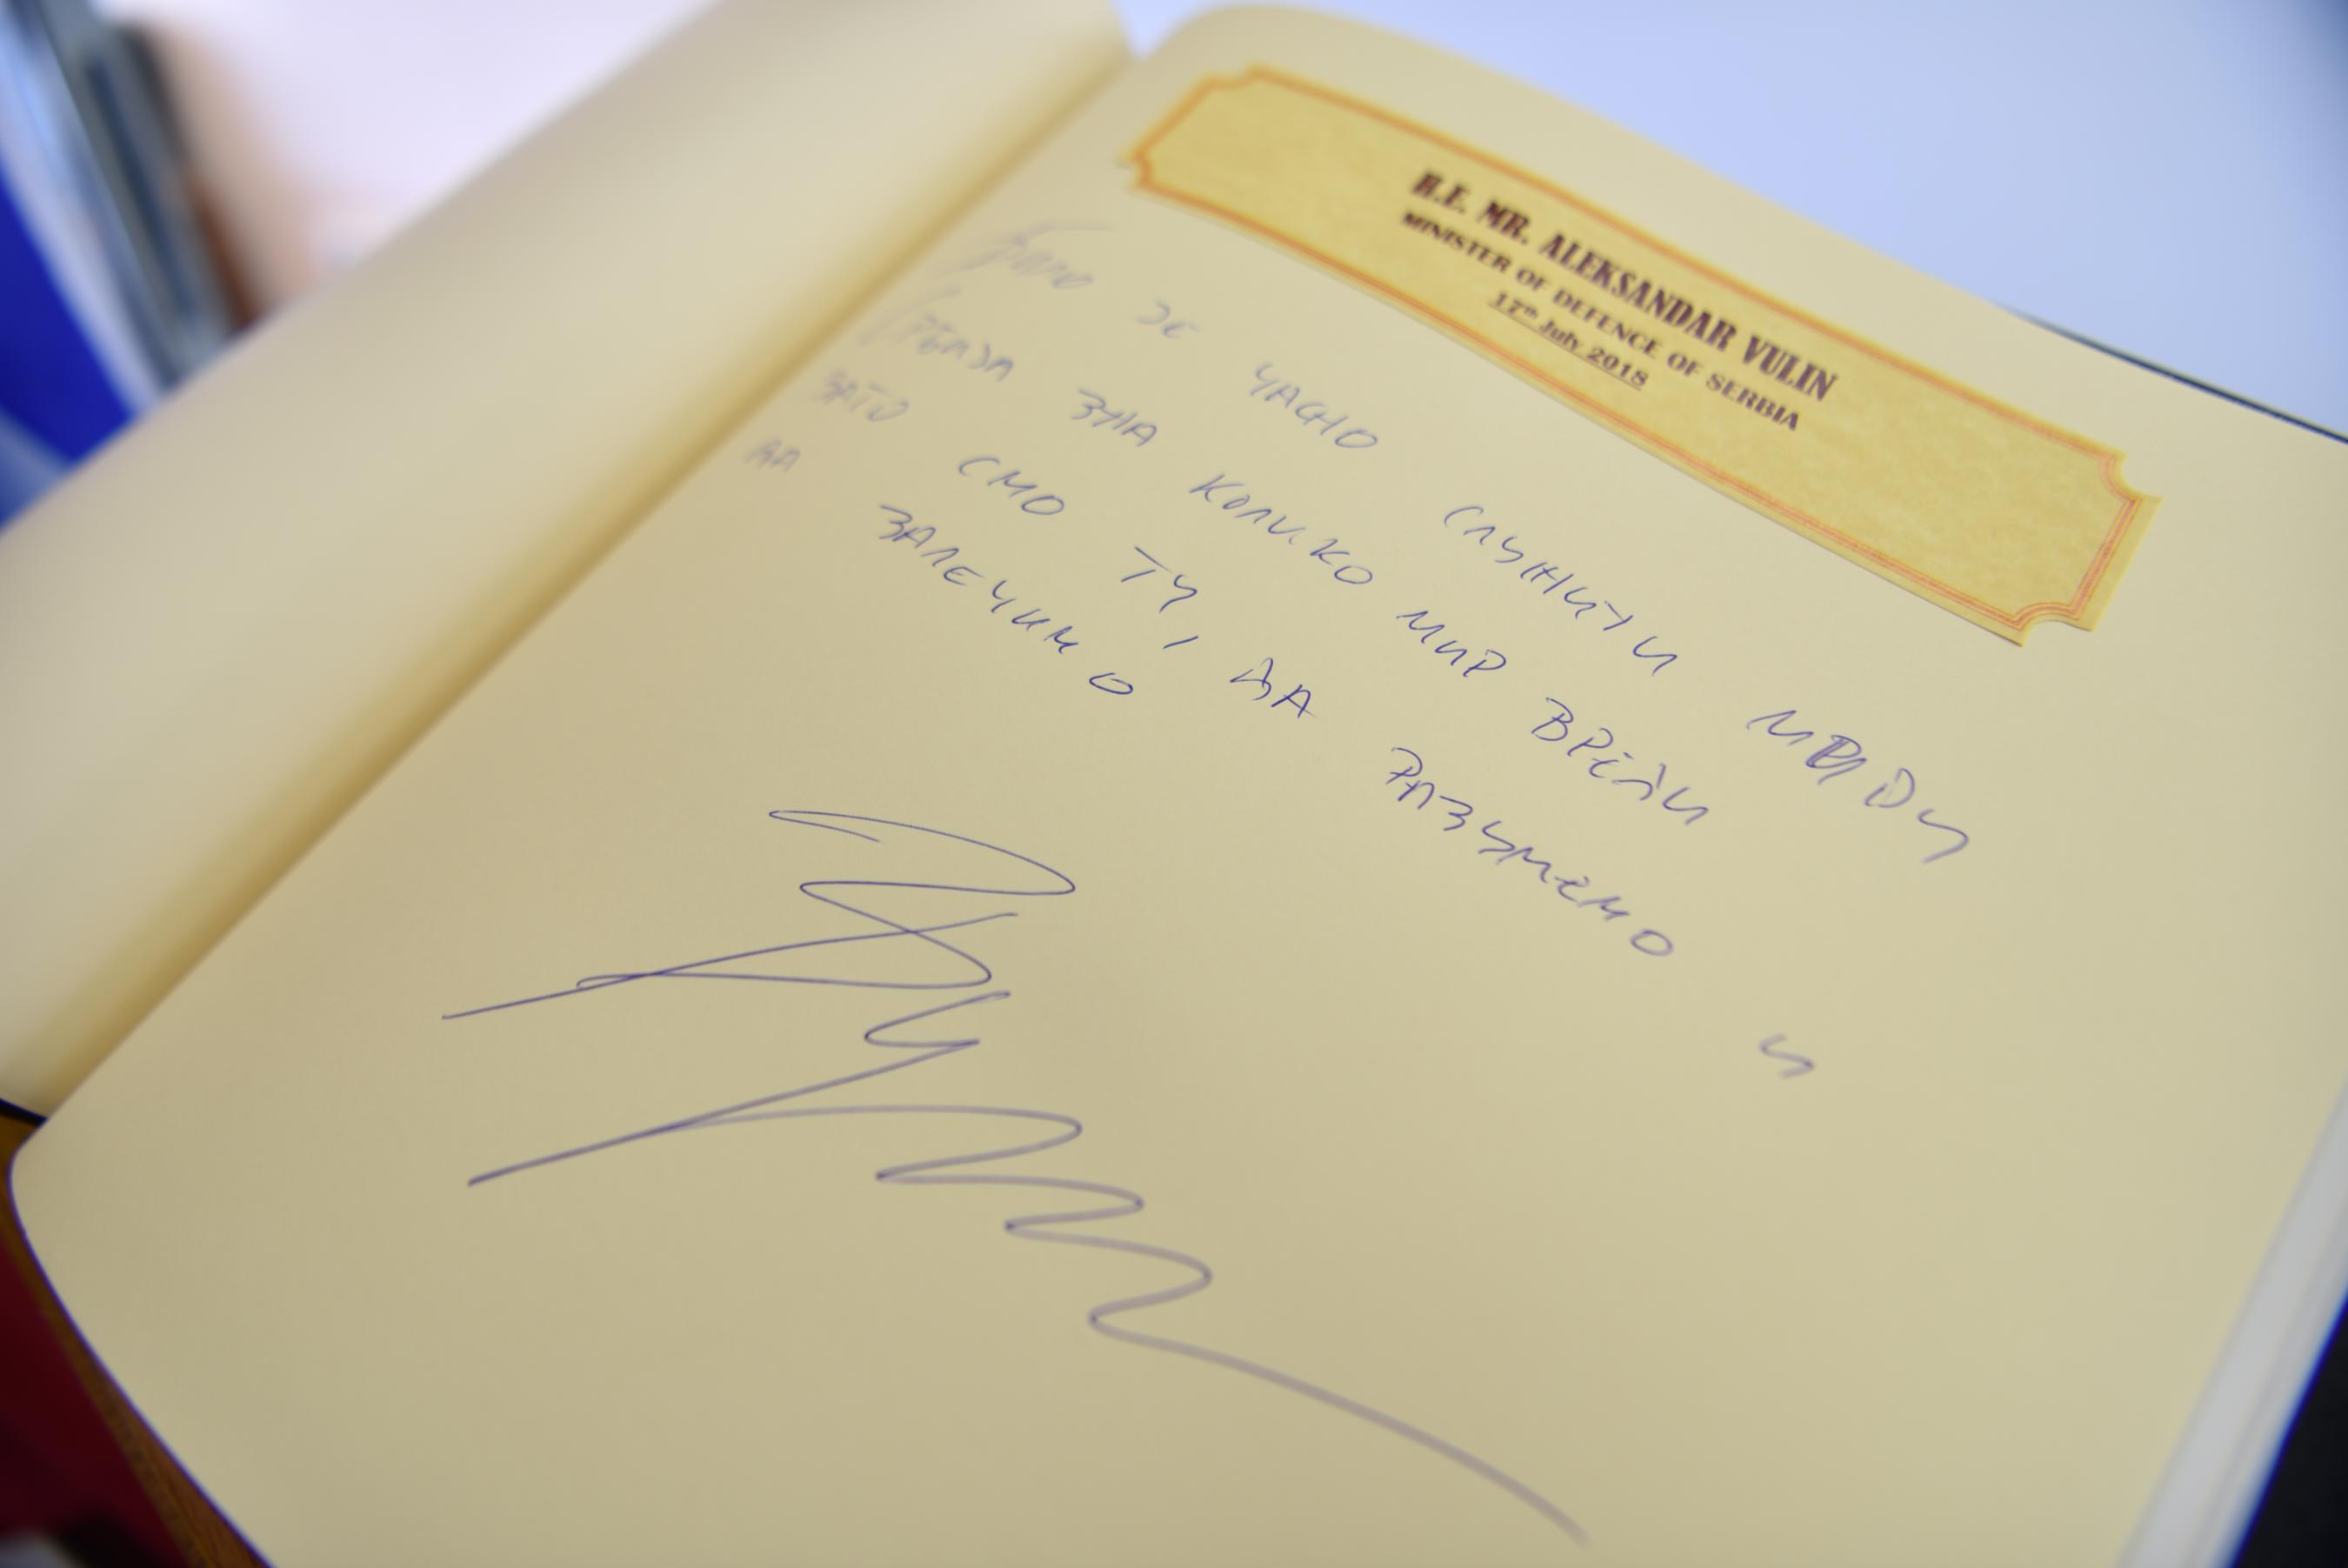 H.E. MR. ALEKSANDAR VULIN
MINISTER OF DEFENCE OF SERBIA
17th July 2018
ЈЕ ЧАСНО СЛУЖИТИ
СРБИЈА ЗНА КОЛИКО МИР ВРЕДИ
ЗАТО СМО ТУ, ДА РАЗУМЕМО И
ДА ЗАЛЕЧИМО